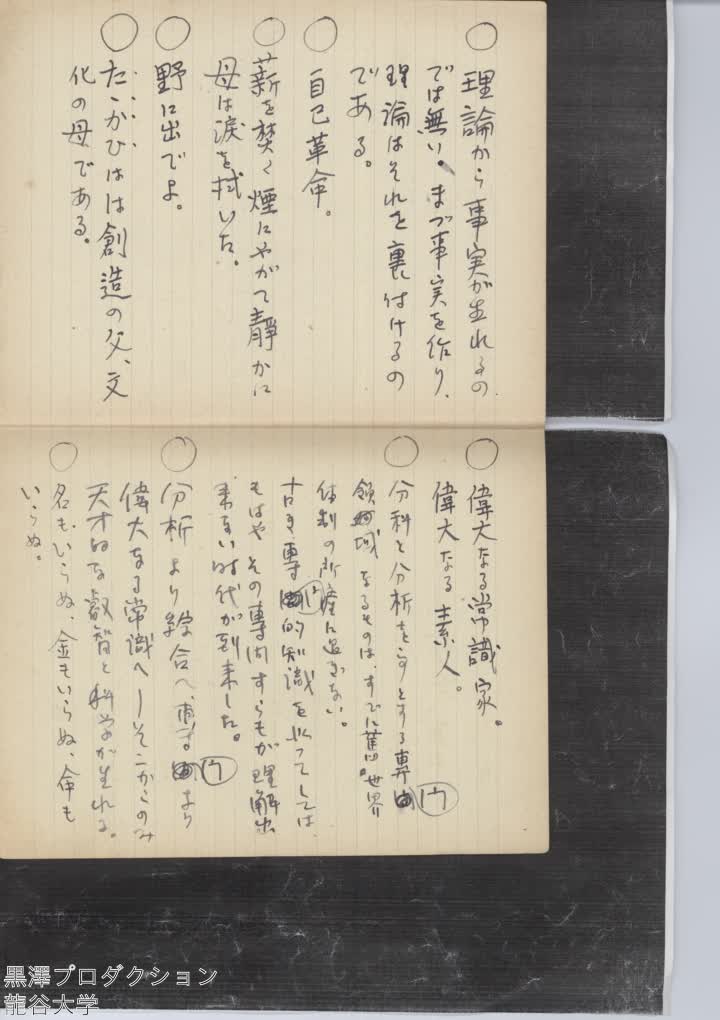 ○ 理論から事実が生れるの
では無い。まづ事実を作り、
理論はそれを裏付けるの
である。
○ 自己革命。
○ 薪を焚く煙にやがて静かに
母は涙を拭いた。
○ 野に出でよ。
○ たゝかひはは創造の父、文
化の母である。
○ 偉大なる常識家。
偉大なる素人。
○ 分科と分析をこととする専門
領域なるものは、すでに旧世界
体制の所産に過ぎない。
古き専門的知識を以つてしては、
もはやその専門すらもが理解出
来ない時代が到来した。
○ 分析より綜合へ、専門より
偉大なる常識へ―そこからのみ
天才的な叡智と科学が生れる。
○ 名もいらぬ、金もいらぬ、命も
いらぬ。
黒澤プロダクション
龍谷大学